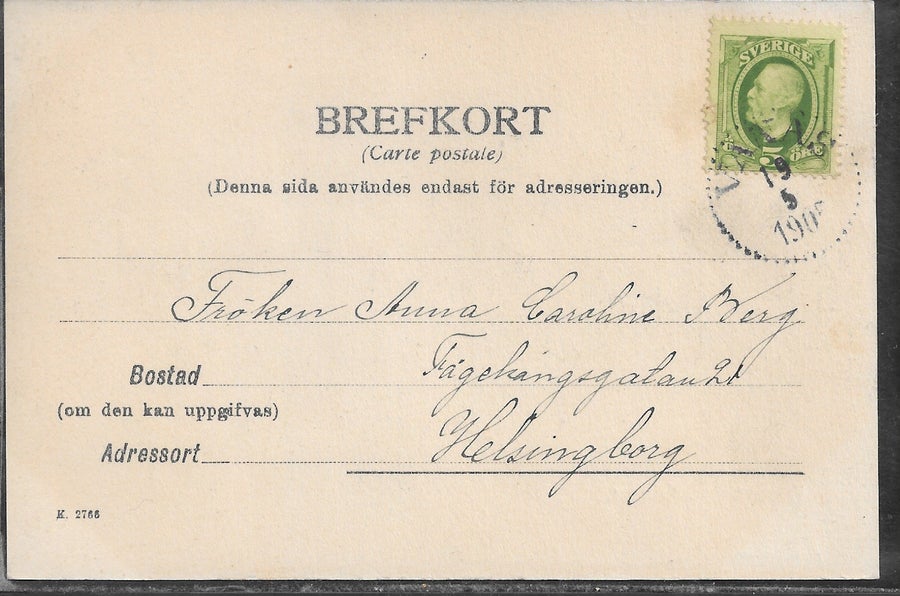 SVERIGE
5 ÖRE
19
5
BREFKORT
(Carte postale)
(Denna sida användes endast för adresseringen.)
Fröken Anna Caroline Berg
Bostad
(om den kan uppgifvas)
Adressort
Helsingborg
K. 2766